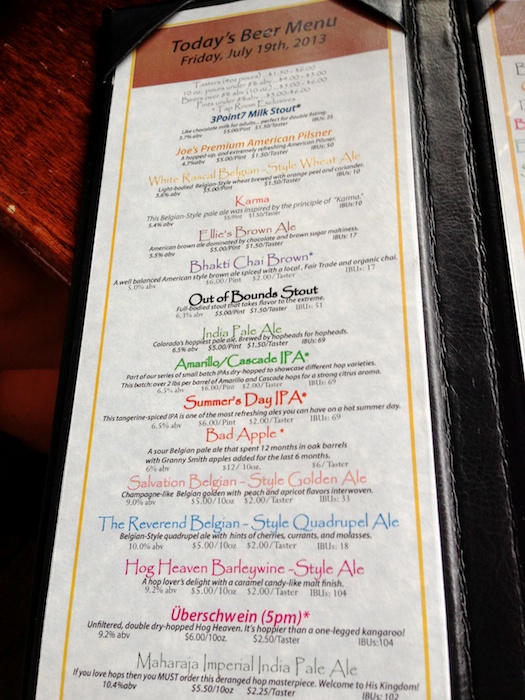 Today's Beer Menu
Friday, July 19th, 2013
Tasters (4oz pours) - $1.50 - $6.00
10 oz. pours under 8% abv - $4.00 - $5.00
Beers over 8% abv (10 oz.) - $5.00 - $6.00
Pints under 8%abv - $5.00-$6.00
* Tap Room Exclusives
3Point7 Milk Stout*
Like chocolate milk for adults... perfect for double fisting.
3.7% abv $5.00/Pint $1.50/Taster IBUs: 35
Joe's Premium American Pilsner
A hopped-up, and extremely refreshing American Pilsner.
4.7%abv $5.00/Pint $1.50/Taster IBUs: 50
White Rascal Belgian -Style Wheat Ale
Light-bodied Belgian-Style wheat brewed with orange peel and coriander.
5.6% abv $5.00/Pint $1.50/Taster IBUs: 10
Karma
This Belgian-Style pale ale was inspired by the principle of "Karma."
5.4% abv $5/Pint $1.50/Taster IBUs:10
Ellie's Brown Ale
American brown ale dominated by chocolate and brown sugar maltiness.
5.5% abv $5.00/Pint $1.50/Taster IBUs: 17
Bhakti Chai Brown*
A well balanced American style brown ale spiced with a local, Fair Trade and organic chai.
5.0% abv $6.00/Pint $2.00/Taster IBUs: 17
Out of Bounds Stout
Full-bodied stout that takes flavor to the extreme.
6.5% abv $5.00/Pint $1.50/Taster IBUs: 51
India Pale Ale
Colorado's hoppiest pale ale. Brewed by hopheads for hopheads.
6.5% abv $5.00/Pint $1.50/Taster IBUs: 69
Amarillo/Cascade IPA*
Part of our series of small batch IPAs dry-hopped to showcase different hop varieties.
This batch: over 2 lbs per barrel of Amarillo and Cascade hops for a strong citrus aroma.
6.5% abv $6.00/Pint $2.00/Taster IBUs: 69
Summer's Day IPA*
This tangerine-spiced IPA is one of the most refreshing ales you can have on a hot summer day.
6.5% abv $6.00/Pint $2.00/Taster IBUs: 69
Bad Apple *
A sour Belgian pale ale that spent 12 months in oak barrels
with Granny Smith apples added for the last 6 months.
6% abv $12/ 10oz. $6/Taster
Salvation Belgian - Style Golden Ale
Champagne-like Belgian golden with peach and apricot flavors interwoven.
9.0% abv $5.00/10oz $2.00/Taster IBUs: 33
The Reverend Belgian - Style Quadrupel Ale
Belgian-Style quadrupel ale with hints of cherries, currants, and molasses.
10.0% abv $5.00/10oz $2.00/Taster IBUs: 18
Hog Heaven Barleywine -Style Ale
A hop lover's delight with a caramel candy-like malt finish.
9.2% abv $5.00/10oz $2.00/Taster IBUs: 104
Überschwein (5pm)*
Unfiltered, double dry-hopped Hog Heaven. It's hoppier than a one-legged kangaroo!
9.2% abv $6.00/10oz. $2.50/Taster IBUs:104
Maharaja Imperial India Pale Ale
If you love hops then you MUST order this deranged hop masterpiece. Welcome to His Kingdom!
10.4%abv $5.50/10oz $2.25/Taster IBUs: 102